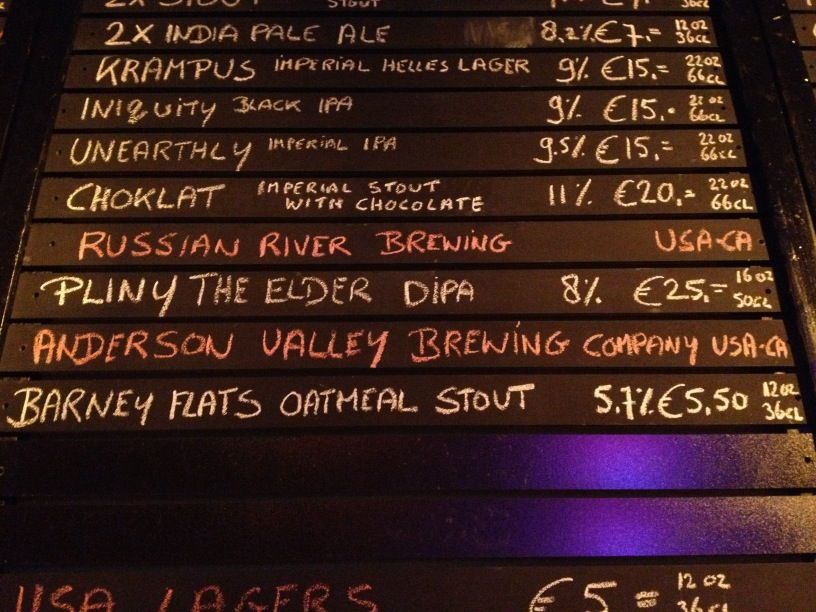 2X STOUT STOUT
2X INDIA PALE ALE 8,2% €7,= 12 OZ 36CL
KRAMPUS IMPERIAL HELLES LAGER 9% €15,= 22 OZ 66CL
INIQUITY BLACK IPA 9% €15,- 22 OZ 66CL
UNEARTHLY IMPERIAL IPA 9.5% €15,= 22 OZ 66CL
CHOKLAT IMPERIAL STOUT WITH CHOCOLATE 11% €20,= 22 OZ 66CL
RUSSIAN RIVER BREWING USA-CA
PLINY THE ELDER DIPA 8% €25,= 16 OZ 50CL
ANDERSON VALLEY BREWING COMPANY USA-CA
BARNEY FLATS OATMEAL STOUT 5,7% €5,50 12 OZ 36CL
USA LAGERS €5= 12 OZ 36CL